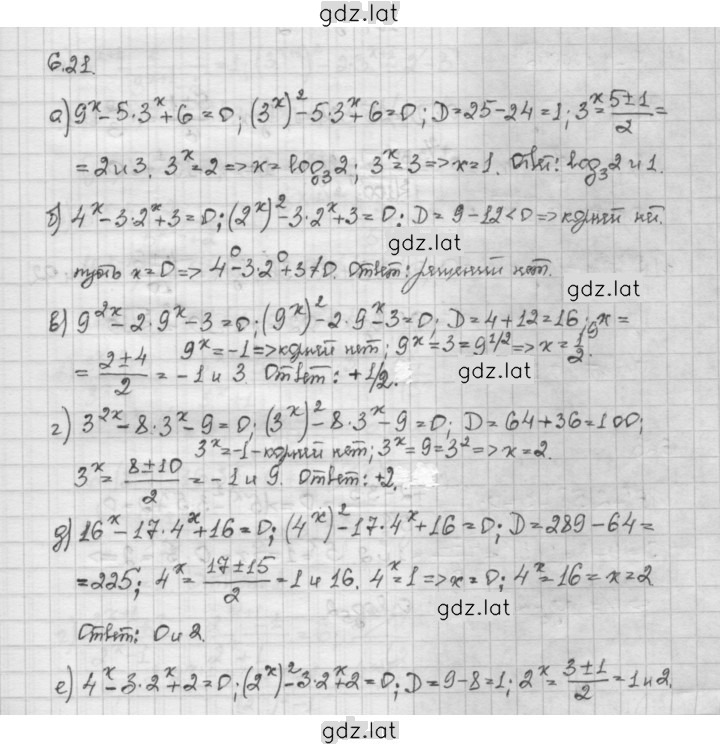 gdz.lat
6.21.
а) 9^x - 5·3^x + 6 = 0; (3^x)^2 - 5·3^x + 6 = 0; D = 25 - 24 = 1; 3^x = (5±1)/2 =
= 2 и 3. 3^x = 2 => x = log₃2; 3^x = 3 => x = 1. Ответ: log₃2 и 1.
б) 4^x - 3·2^x + 3 = 0; (2^x)^2 - 3·2^x + 3 = 0; D = 9 - 12 < 0 => корней нет.
gdz.lat
пусть x = 0 => 4^0 - 3·2^0 + 3 ≠ 0. Ответ: решений нет.
gdz.lat
в) 9^2x - 2·9^x - 3 = 0; (9^x)^2 - 2·9^x - 3 = 0; D = 4 + 12 = 16; 9^x =
9^x = -1 => корней нет; 9^x = 3 = 9^1/2 => x = 1/2.
= (2±4)/2 = -1 и 3. Ответ: +1/2.
gdz.lat
г) 3^2x - 8·3^x - 9 = 0; (3^x)^2 - 8·3^x - 9 = 0; D = 64 + 36 = 100;
3^x = -1 - корней нет; 3^x = 9 = 3^2 => x = 2.
3^x = (8±10)/2 = -1 и 9. Ответ: +2.
д) 16^x - 17·4^x + 16 = 0; (4^x)^2 - 17·4^x + 16 = 0; D = 289 - 64 =
= 225; 4^x = (17±15)/2 = 1 и 16. 4^x = 1 => x = 0; 4^x = 16 = x = 2
gdz.lat
Ответ: 0 и 2.
е) 4^x - 3·2^x + 2 = 0; (2^x)^2 - 3·2^x + 2 = 0; D = 9 - 8 = 1; 2^x = (3±1)/2 = 1 и 2.
gdz.lat